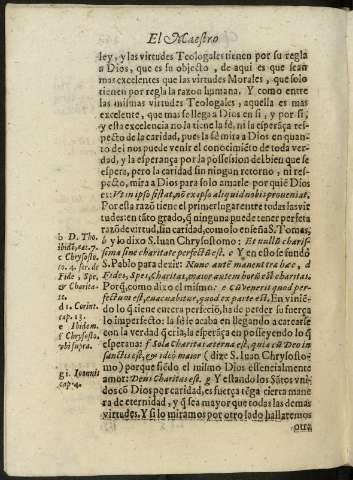 El Maestro
ley, y las virtudes Teologales tienen por su regla
a Dios, que es su objecto, de aqui es que sean
mas excelentes que las virtudes Morales, que solo
tienen por regla la razon humana. Y como entre
las mismas virtudes Teologales, aquella es mas
excelente, que mas se llega a Dios en si, y por si,
y esta excelencia no la tiene la fè, ni la esperãça respe-
to de la caridad, pues la fè mira a Dios en quan-
to del nos puede venir el conocimiẽto de toda ver-
dad, y la esperança por la possession del bien que se
espera, pero la caridad sin ningun retorno, ni res-
pecto, mira a Dios para solo amarle por quiẽ Dios
es: Vt in ipso sistat, nõ ex ipso aliquid nobis proueniat.
Por esta razõ tiene el primer lugar entre todas las vir-
tudes: en tãto grado, q̃ ninguna puede tener perfeta
razõ de virtud, sin caridad, como lo enseña S. Tomas,
b y lo dixo S. Iuan Chrysostomo: Et nulla charis-
sima sine charitate perfectũ est. c Y en esto se fundó
S. Pablo para dezir: Nunc autẽ manent tria hæc, d
Fides, Spes, Charitas, maior autem horũ est charitas.
Porq̃, como dixo el mismo: e cũ venerit quod per-
fectum est, euacuabitur, quod ex parte est. En vinié-
do lo q̃ tiene entera perfeciõ, ha de perder su fuerça
lo imperfecto: la fè le acaba en llegando a carearse
con la verdad q̃ cria, la esperãça en posseyendo lo q̃
esperaua: f Sola Charitas æterna est, quia cũ Deo in
sanctis est, & ideò maior (dize S. Iuan Chrysosto-
mo) porque siẽdo el mismo Dios essencialmente
amor: Deus Charitas est. g Y estando los Sãtos vni-
dos cõ Dios por caridad, es fuerça tẽga cierta mane
ra de eternidad, y q̃ sea mayor que todas las demas
virtudes. Y si lo miramos por otro lado hallaremos
otra
b D. Tho.
ibidẽ, ar. 7.
c Chrysosto.
to. 4. ser. de
Fide, Spe,
& Charita-
te.
d 1. Corint.
cap. 13.
e Ibidem.
f Chrysosto.
vbi supra.
g 1. Ioannis
cap. 4.